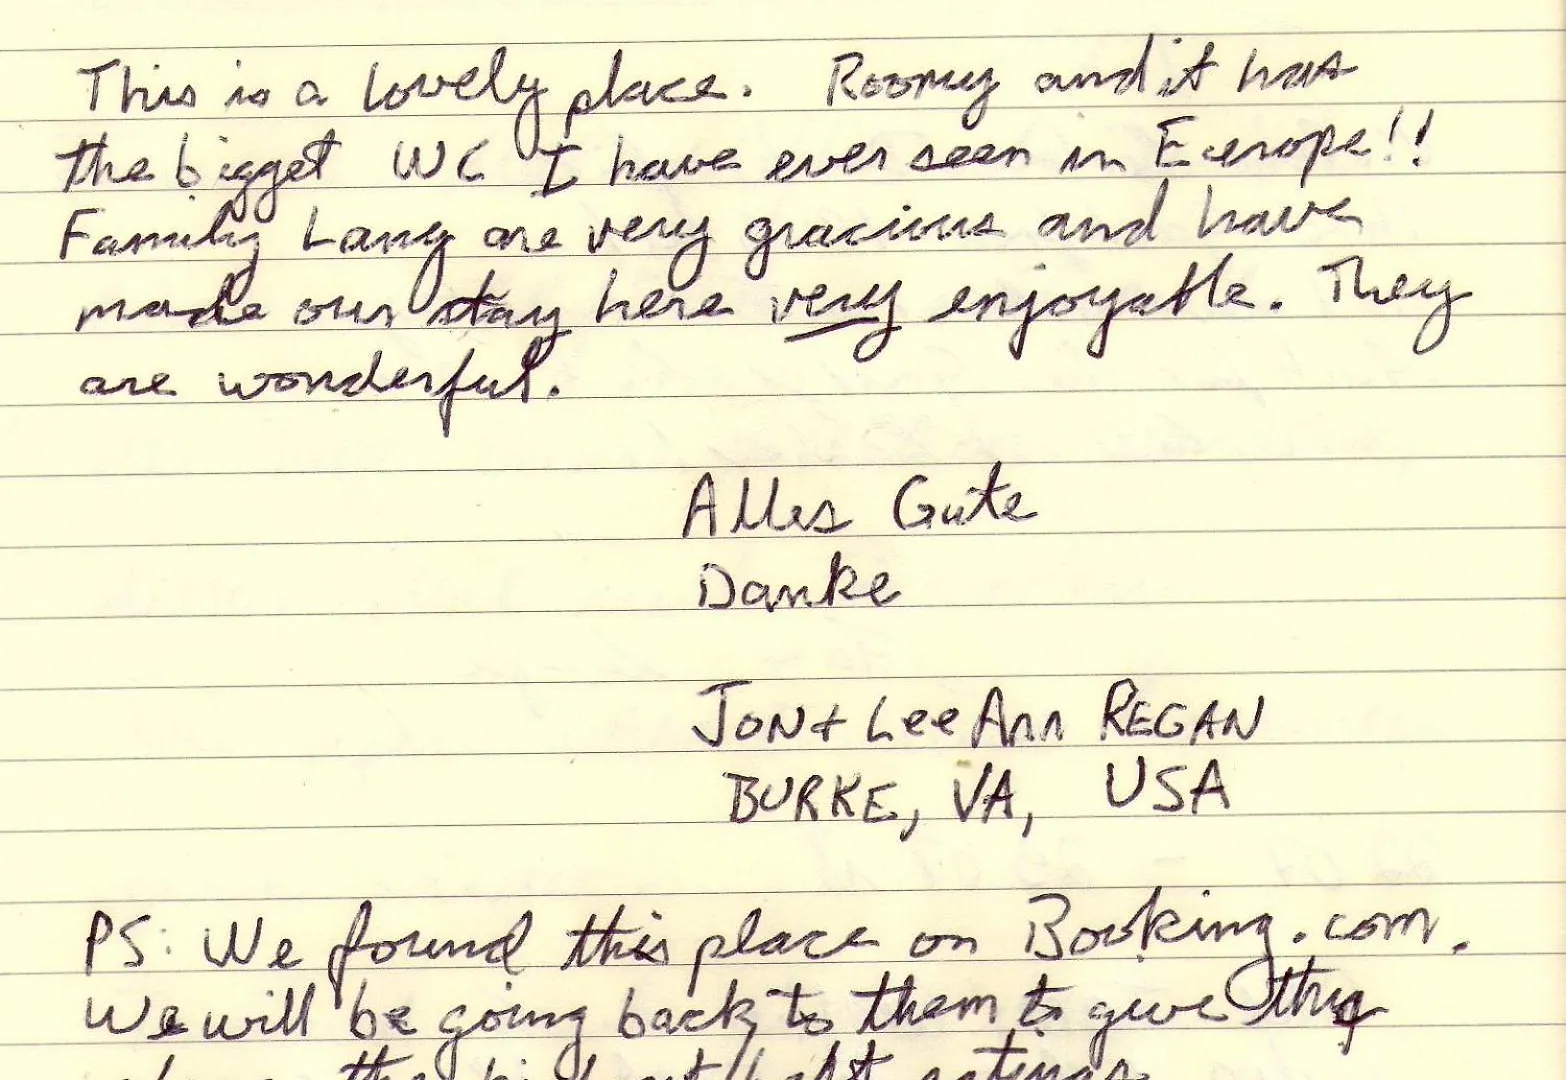 This is a lovely place. Roomy and it has
the bigget WC I have ever seen in Europe!!
Family Lang are very gracious and have
made our stay here very enjoyable. They
are wonderful.
Alles Gute
Danke
Jon + LeeAnn REGAN
BURKE, VA, USA
PS: We found this place on Booking.com.
We will be going back to them to give this
place the highest best ratings